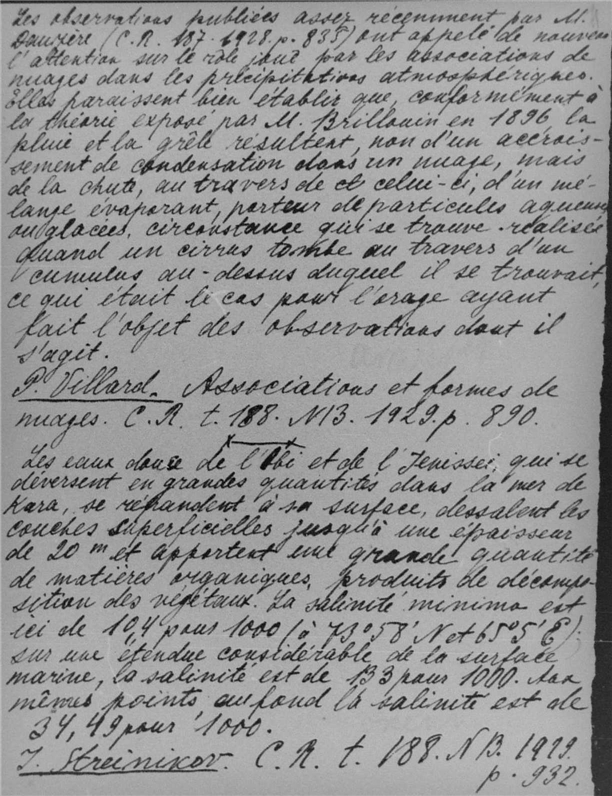 Les observations publiées assez récemment par M.
Dauzère (C.R. 187. 1928. p. 835) ont appelé de nouveau
l'attention sur le rôle joué par les associations de
nuages dans les précipitations atmosphériques.
Elles paraissent bien établir que, conformément à
la théorie exposé par M. Brillouin en 1896 la
pluie et la grêle résultent, non d'un accrois-
sement de condensation dans un nuage, mais
de la chute, au travers de celui-ci, d'un mé-
lange évaporant, porteur de particules aqueuses
ou glacées, circonstance qui se trouve réalisée
quand un cirrus tombe au travers d'un
cumulus au-dessus duquel il se trouvait,
ce qui était le cas pour l'orage ayant
fait l'objet des observations dont il
s'agit.
P. Villard. Associations et formes de
nuages. C. R. t. 188. N13. 1929. p. 890.
Les eaux douce de l'Obi et de l'Jenissei, qui se
déversent en grandes quantités dans la mer de
Kara, se répandent à sa surface, dessalent les
couches superficielles jusqu'à une épaisseur
de 20 m et apportent une grande quantité
de matières organiques, produits de décompo-
sition des végétaux. La salinité minima est
ici de 10,4 pour 1000 (à 73°58' N et 65°5' E);
sur une étendue considérable de la surface
marine, la salinité est de 13 pour 1000. Aux
mêmes points au fond la salinité est de
34,49 pour 1000.
J. Streinikov. C. R. t. 188. N13. 1929.
p. 932.